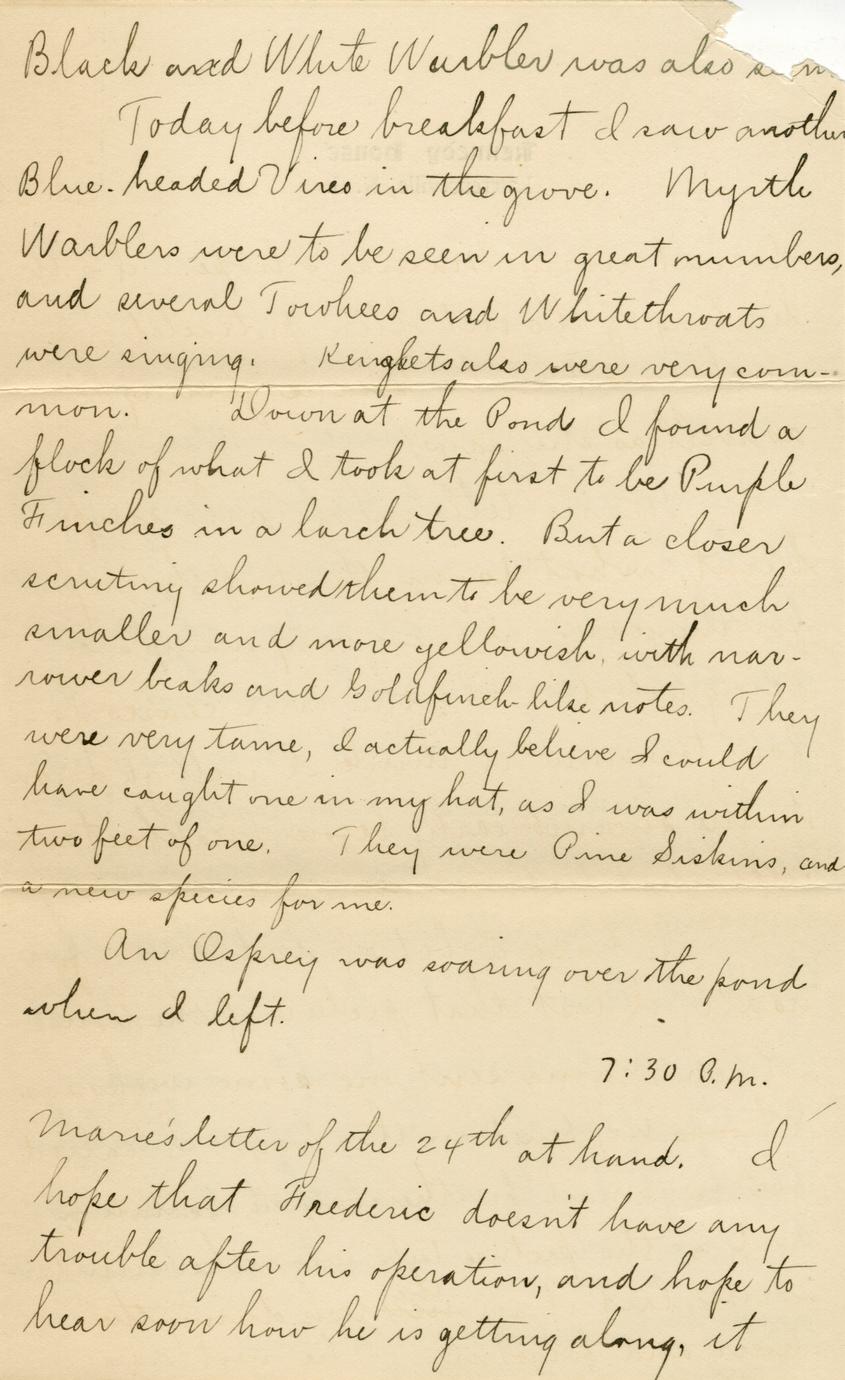 Black and White Warbler was also seen.
Today before breakfast I saw another
Blue-headed Vireo in the grove. Myrtle
Warblers were to be seen in great numbers,
and several Towhees and Whitethroats
were singing. Kinglets also were very com-
mon. Down at the Pond I found a
flock of what I took at first to be Purple
Finches in a larch tree. But a closer
scrutiny showed them to be very much
smaller and more yellowish, with nar-
rower beaks and Goldfinch-like notes. They
were very tame, I actually believe I could
have caught one in my hat, as I was within
two feet of one. They were Pine Siskins, and
a new species for me.
An Osprey was soaring over the pond
when I left.
7:30 P.M.
Marie's letter of the 24th at hand. I
hope that Frederic doesn't have any
trouble after his operation, and hope to
hear soon how he is getting along, it